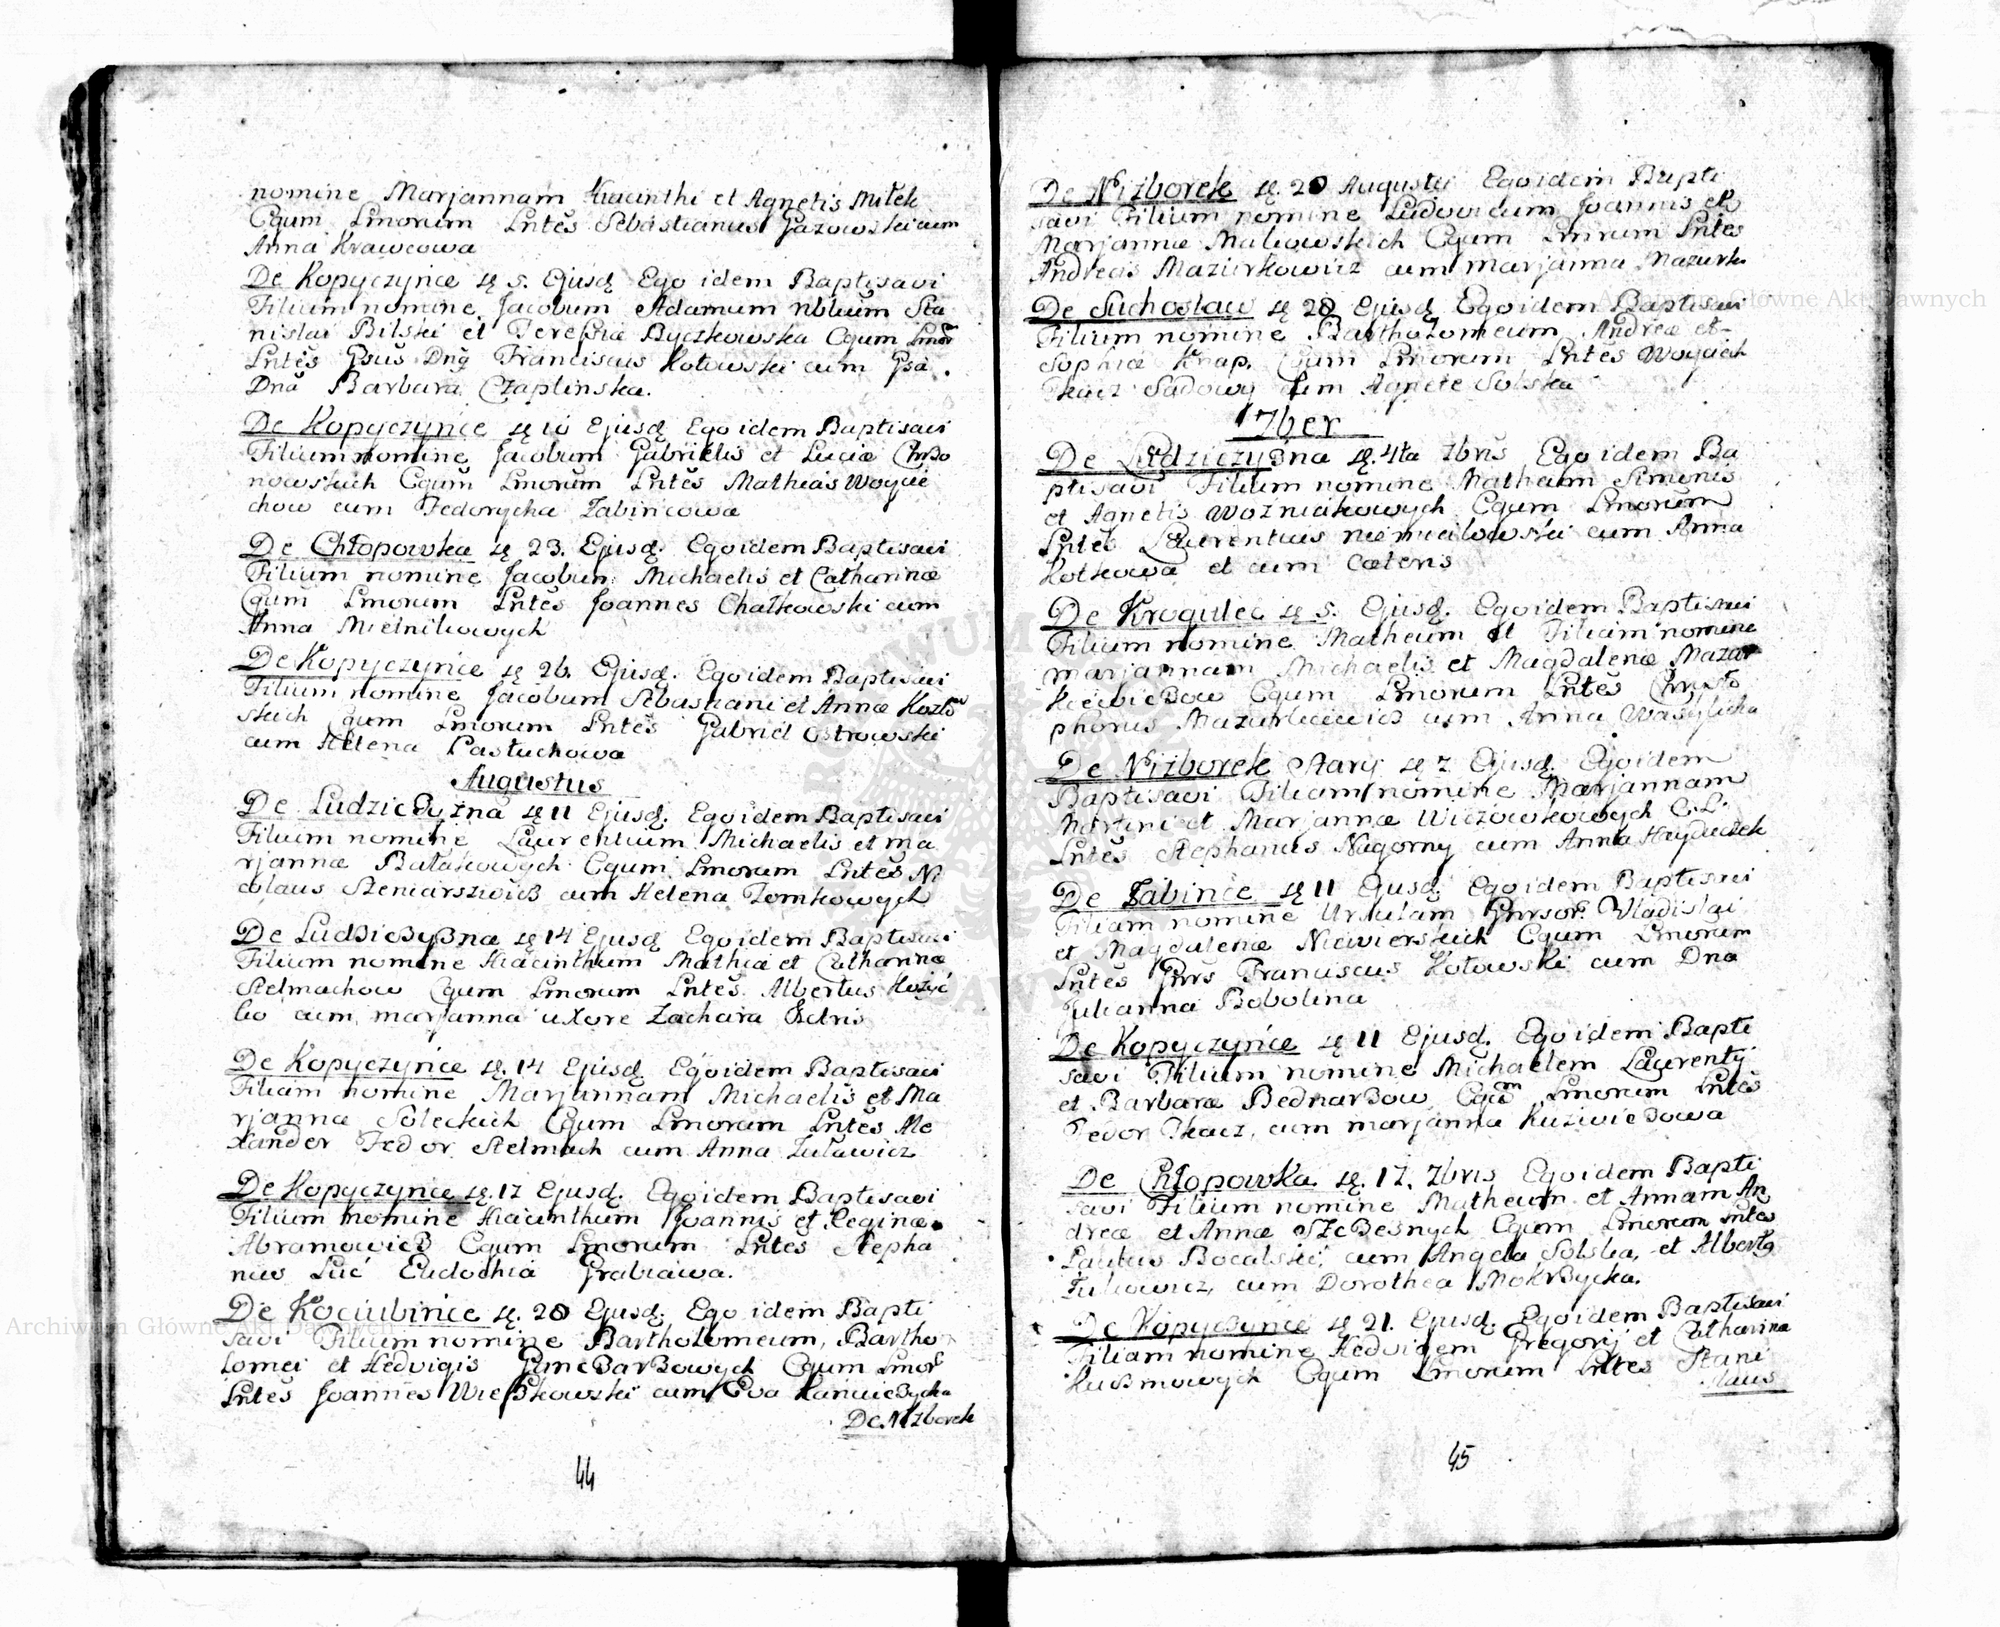 nomine Marjannam Hiacinthi et Agnetis Milek
Cgum Lmorum Lntěs Sebastianus Gazowski cum
Anna Krawcowa
De Kopyczyńce 5. Ejusḍ Ego idem Baptisavi
Filium nomine Jacobum Adamum Sta
nislai Bilski et Teressia Byczkowska Cgum Lmor
Lntěs Gsus Dnġ Franciscus Kotowski cum Gsa
Dna Barbara Czaplinska.
De Kopyczyńce 10 Ejusḍ Ego idem Baptisavi
Filium nomine Jacobum Gabrielis et Luciæ Chrzo
nowskich Cgum Lmorum Lntěs Mathias Woycie
chow cum Fedorycha Zabincowa
De Chłopowka 23. Ejusḍ. Ego idem Baptisavi
Filium nomine Jacobum Michaelis et Catharinæ
Cgum Lmorum Lntěs Joannes Chałkowski cum
Anna Mielnikowych
De Kopyczyńce 26. Ejusḍ. Ego idem Baptisavi
Filium nomine Jacobum Sebastiani et Annæ Kozło
skich Cgum Lmorum Lntěs Gabriel Ostrowski
cum Helena Pastuchowa
Augustus
De Ludziczyzna 11 Ejusḍ. Ego idem Baptisavi
Filium nomine Laurentium Michaelis et Ma
rjannæ Bałakowych Cgum Lmorum Lntěs Ni
colaus cum Helena Tomkowych
De Ludziczyzna 14 Ejusḍ Ego idem Baptisavi
Filium nomine Hiacinthum Mathiæ et Catharinæ
Stelmachow Cgum Lmorum Lntěs Albertus
cum marjanna uxore Zachara
De Kopyczyńce 14 Ejusḍ. Ego idem Baptisavi
Filiam nomine Marjannam Michaelis et Ma
rjanna Soleckich Cgum Lmorum Lntěs Ale
xander Fedor Stelmach cum Anna Zuławicz
De Kopyczyńce 17 Ejusḍ. Ego idem Baptisavi
Filium nomine Hiacinthum Joannis et Reginæ
Abramowicz Cgum Lmorum Lntěs Stepha
nus Luć Eudochia Grabiawa.
De Kociubińce 20 Ejusḍ. Ego idem Bapti
savi Filium nomine Bartholomeum, Bartho
lomei et Hedvigis Cgum Lmor
Lntěs Joannes cum Eva
De Nizborek
44
De Nizborek 20 Augusti Ego idem Bapti
savi Filium nomine Ludovicum Joannis et
Marjannæ Malkowskich Cgum Lmorum Lntěs
Andreas Mazurkowicz cum Marjanna Mazurk.
De Suchostaw 20 Ejusḍ Ego idem Baptisavi
Filium nomine Bartholomeum Andreæ et
Sophiæ Knap. Cgum Lmorum Lntěs Woyciech
Tkacz Sadowy cum Agnete Solska
17ber
De Ludziczyzna 4ta 7bris Ego idem Ba
ptisavi Filium nomine Matheum Simonis
et Agnetis Wozniakowych Cgum Lmorum
Lntěs Laurentius Niemiłowski cum Anna
Kotkowa et cum cæteris
De Krogulec 5. Ejusḍ. Ego idem Baptisavi
Filium nomine Matheum et Filiam nomine
marjannam Michaelis et Magdalenæ Mazur
kiewiczow Cgum Lmorum Lntěs Chrysto
phorus Mazurkiewicz cum Anna Wasylicha
De Nizborek Stary 7 Ejusḍ. Ego idem
Baptisavi Filiam nomine Marjannam
Martini et Marjannæ C.L.
Lntěs Stephanus Nagorny cum Anna
De Zabińce 11 Ejusḍ. Ego idem Baptisavi
Filiam nomine Ursulam Gnrsor. Vladislai
et Magdalenæ Niewierskich Cgum Lmorum
Lntěs Gnrs Franciscus Kotowski cum Dna
Julianna Bobolina
De Kopyczyńce 11 Ejusḍ. Ego idem Bapti
savi Filium nomine Michaelem Laurenty
et Barbaræ Bednarzow Cgum Lmorum Lntěs
Fedor Tkacz, cum marjanna Kuziwiezowa
De Chłopowka 17. 7bris Ego idem Bapti
savi Filium nomine Matheum et Annam An
dreæ et Annæ Szczesnych Cgum Lmorum Lntěs
Paulus Bocalski, cum Angela Solska, et Albertg
Juliowicz, cum Dorothea Mokrzycka.
De Kopyczyńce 21. Ejusḍ. Ego idem Baptisavi
Filiam nomine Hedvigem Gregorij et Catharinæ
Kuzmowych Cgum Lmorum Lntěs Stani
slaus
45
Archiwum Główne Akt Dawnych
Archiwum Główne Akt Dawnych